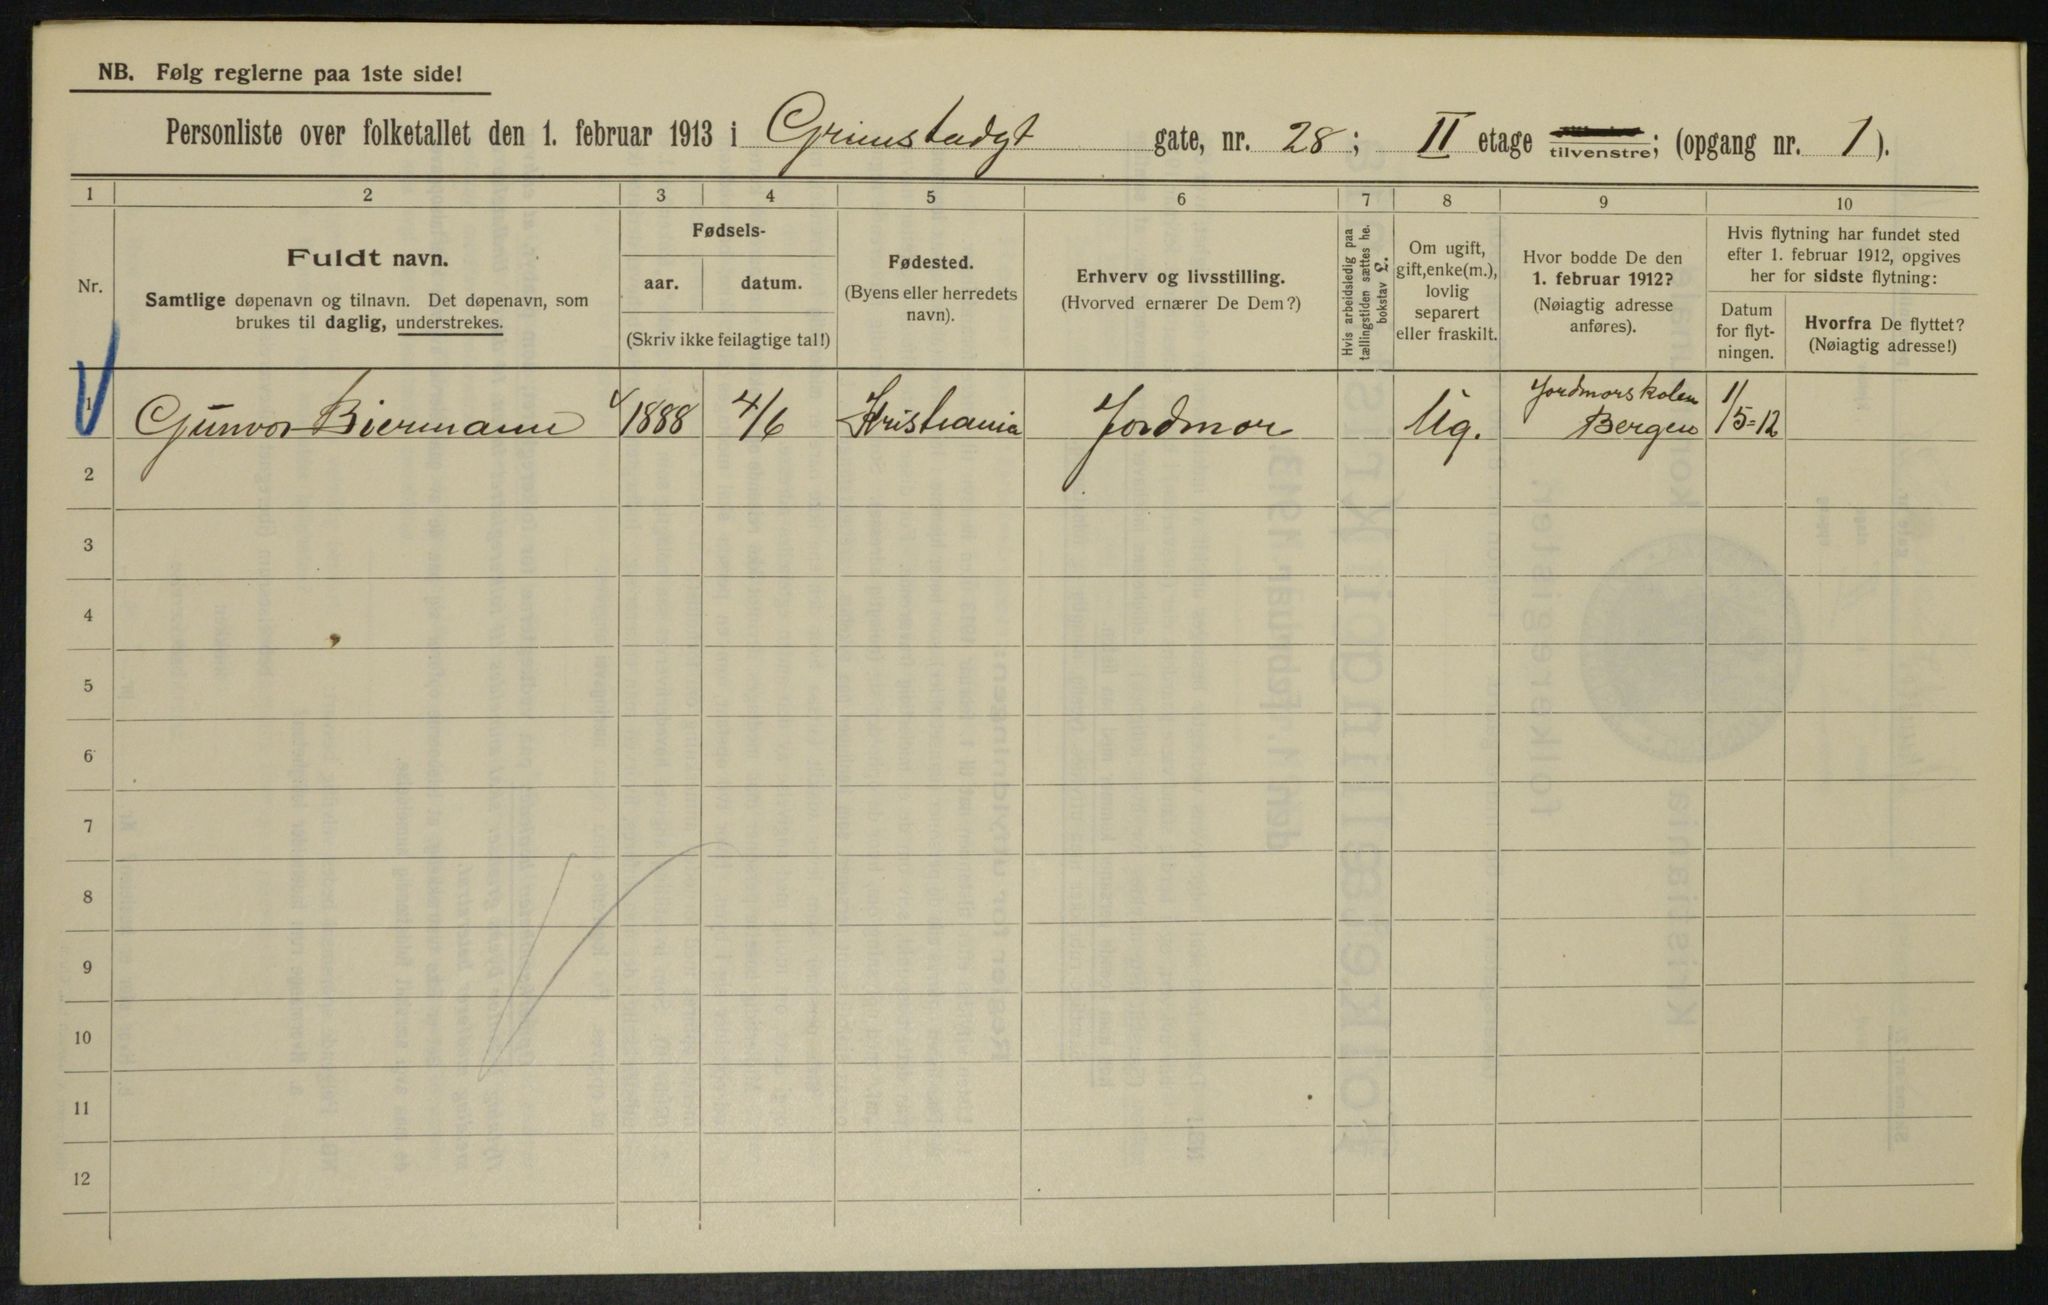 NB. Følg reglerne paa 1ste side!
Personliste over folketallet den 1. februar 1913 i Grimstadgt gate, nr. 28; II etage tilvenstre; (opgang nr. 1).
1 2 3 4 5 6 7 8 9 10
Nr.
Fuldt navn.
Samtlige døpenavn og tilnavn. Det døpenavn, som
brukes til daglig, understrekes.
Fødsels-
aar. datum.
(Skriv ikke feilagtige tal!)
Fødested.
(Byens eller herredets
navn).
Erhverv og livsstilling.
(Hvorved ernærer De Dem?)
Hvis arbeidsledig paa
tællingstiden sættes he.
bokstav £.
Om ugift,
gift, enke(m.),
lovlig
separert
eller fraskilt.
Hvor bodde De den
1. februar 1912?
(Nøiagtig adresse
anføres).
Hvis flytning har fundet sted
efter 1. februar 1912, opgives
her for sidste flytning:
Datum
for flyt-
ningen.
Hvorfra De flyttet?
(Nøiagtig adresse!)
1 Gunvor Biermann 1888 4/6 Kristiania Jordmor Ug. Jordmorskolen
Bergen 1/5-12
2
3
4
5
6
7
8
9
10
11
12